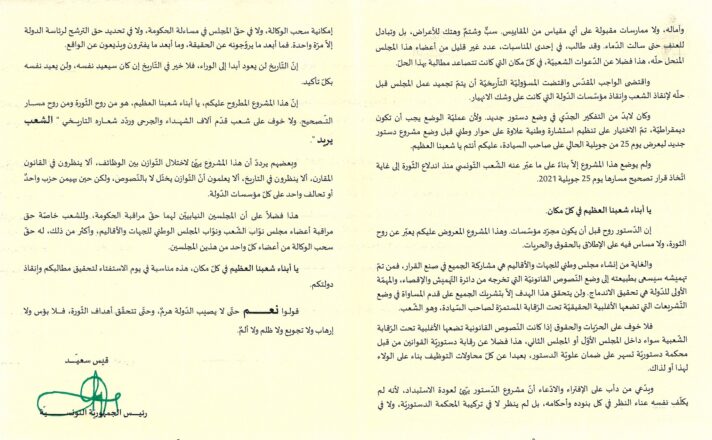 وآماله، ولا ممارسات مقبولة على أي مقياس من المقاييس. سبّ وشتمٌ وهتك للأعراض، بل وتبادل
للعنف حتى سالت الدّماء. وقد طالب، في إحدى المناسبات، عدد غير قليل من أعضاء هذا المجلس
المنحل حلّه، هذا فضلا عن الدعوات الشعبيّة، في كلّ مكان التي كانت تتصاعد مطالبة بهذا الحل.
واقتضى الواجب المقدّس واقتضت المسؤوليّة التأريخيّة أن يتمّ تجميد عمل المجلس قبل
حلّه لإنقاذ الشعب وإنقاذ مؤسّسات الدّولة التي كانت على وشك الانهيار.
وكان لابدّ من التفكير الجدّي في وضع دستور جديد. ولأن عملية الوضع يجب أن تكون
ديمقراطيّة، تمّ الاختيار على تنظيم استشارة وطنية علاوة على حوار وطني قبل وضع مشروع دستور
جديد ليعرض يوم 25 من جويلية الحالي على صاحب السيادة، عليكم أنتم يا شعبنا العظيم.
ولم يوضع هذا المشروع إلاّ بناءً على ما عبّر عنه الشعب التونسي منذ اندلاع الثورة إلى غاية
اتّخاذ قرار تصحيح مسارها يوم 25 جويلية 2021.
يا أبناء شعبنا العظيم في كلّ مكان،
إن الدّستور روح قبل أن يكون مجرّد مؤسّسات. وهذا المشروع المعروض عليكم يعبّر عن روح
الثورة، ولا مساس فيه على الإطلاق بالحقوق والحريات.
والغاية من إنشاء مجلس وطني للجهات والأقاليم هي مشاركة الجميع في صنع القرار، فمن تمّ
تهميشه سيسعى بطبيعته إلى وضع النصوص القانونيّة التي تخرجه من دائرة التّهميش والإقصاء، والمهمّة
الأولى للدّولة هي تحقيق الاندماج. ولن يتحقق هذا الهدف إلاّ بتشريك الجميع على قدم المساواة في وضع
التّشريعات التي تضعها الأغلبية الحقيقيّة تحت الرّقابة المستمرّة لصاحب السّيادة، وهو الشّعب.
فلا خوف على الحرّيات والحقوق إذا كانت النّصوص القانونية تضعها الأغلبية تحت الرّقابة
الشّعبية سواء داخل المجلس الأوّل أو المجلس الثاني، هذا فضلا عن رقابة دستوريّة القوانين من قبل
محكمة دستورية تسهر على ضمان علويّة الدستور، بعيدا عن كلّ محاولات التوظيف بناء على الولاء
لهذا أو لذاك.
ويدّعي من دأب على الافتراء والادّعاء أنّ مشروع الدّستور يهيّئ لعودة الاستبداد، لأنه لم
يكلّف نفسه عناء النظر في كل بنوده وأحكامه، بل لم ينظر لا في تركيبة المحكمة الدستوريّة، ولا في
إمكانية سحب الوكالة، ولا في حقّ المجلس في مساءلة الحكومة، ولا في تحديد حق الترشح لرئاسة الدولة
إلاّ مرّة واحدة. فما أبعد ما يروّجونه عن الحقيقة، وما أبعد ما يفترون ويذيعون عن الواقع.
إنّ التّاريخ لن يعود أبدا إلى الوراء، فلا خير في التّاريخ إن كان سيعيد نفسه، ولن يعيد نفسه
بكلّ تأكيد.
إنّ هذا المشروع المطروح عليكم، يا أبناء شعبنا العظيم، هو من روح الثّورة ومن روح مسار
التّصحيح. ولا خوف على شعب قدّم آلاف الشّهداء والجرحى وردّد شعاره التاريخي " الشعب
يريد ".
وبعضهم يردّد أن هذا المشروع يهيّئ لاختلال التّوازن بين الوظائف، ألا ينظرون في القانون
المقارن، ألا ينظرون في التاريخ، ألا يعلمون أنّ التّوازن يختلّ لا بالنّصوص، ولكن حين يهيمن حزب واحدٌ
أو تحالف واحد على كلّ مؤسسات الدّولة.
هذا فضلاً على أن المجلسين النيابيّين لهما حقّ مراقبة الحكومة، وللشعب خاصّة حق
مراقبة أعضاء مجلس نوّاب الشّعب ونوّاب المجلس الوطني للجهات والأقاليم، وأكثر من ذلك، له حق
سحب الوكالة من أعضاء كلّ واحد من هذين المجلسين.
يا أبناء شعبنا العظيم في كلّ مكان، هذه مناسبة في يوم الاستفتاء لتحقيق مطالبكم وإنقاذ
دولتكم.
قولوا نعم حتّى لا يصيب الدّولة هرمٌ، وحتى تتحقق أهداف الثّورة، فلا بؤس ولا
إرهاب ولا تجويع ولا ظلم ولا ألمٌ.
قيس سعيّد
رئيس الجمهوريّة التونسيّة